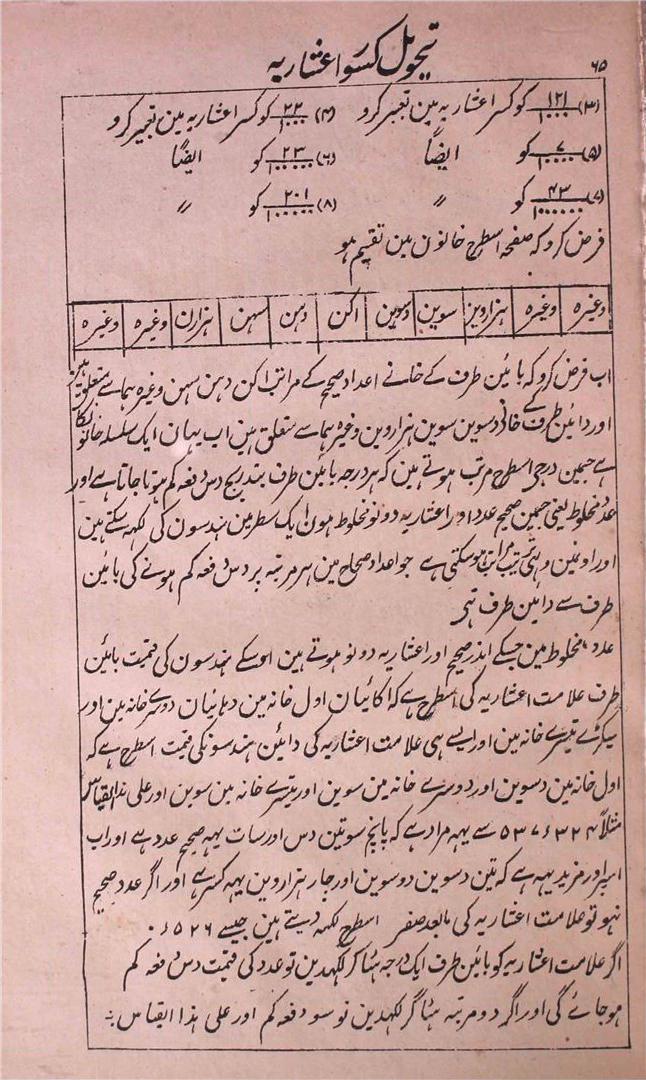 ۶۵
تحویل کسور اعشاریہ
(۳) ۱۲۱/۱۰۰۰۰ کو کسر اعشاریہ مین تعبیر کرو (۴) ۲۲/۱۰۰۰ کو کسر اعشاریہ مین تعبیر کرو
(۵) ۷/۱۰۰۰۰ کو ایضاً (۶) ۲۳/۱۰۰۰۰۰ کو ایضاً
(۷) ۴۳/۱۰۰۰۰۰۰ کو 〃 (۸) ۲۰۱/۱۰۰۰۰۰۰ کو 〃
فرض کرو کہ صفحہ اسطرح خانون مین تقسیم ہو
وغیرہ وغیرہ ہزارویز سوین دسوین اکن دہن سہن ہزارن وغیرہ وغیرہ
اب فرض کرو کہ بائین طرف کے خانے اعداد صحیح کے مراتب اکن دہن سہن وغیرہ ہما سے متعلق ہین
اور دائین طرف کے خانی دسوین سوین ہزاروین وغیرہ ہما سے متعلق ہین اب یہان ایک سلسلہ خانونکا
ہے جسمین درجی اسطرح مرتب ہوتے ہین کہ ہر درجہ بائین طرف بتدریج دس دفعہ کم ہوتا جاتا ہے اور
عدد مخلوط یعنی جسمین صحیح عدد اور اعشاریہ دونو مخلوط ہون ایک سطر مین ہندسون کی لکہہ سکتے ہین
اور اونمین وہی ترتیب مراتب ہو سکتی ہے جو اعداد صحاح مین ہر مرتبہ پر دس دفعہ کم ہونے کی بائین
طرف سے داہین طرف تہی
عدد مخلوط مین جسکے اندر صحیح اور اعشاریہ دونو ہوتے ہین اوسکے ہندسون کی قیمت بائین
طرف علامت اعشاریہ کی اسطرح ہے کہ اکائیان اول خانہ مین دہائیان دوسرے خانہ مین اور
سیکڑے تیسرے خانہ مین اور ایسے ہی علامت اعشاریہ کی دائین ہندسونکی قیمت اسطرح ہے کہ
اول خانہ مین دسوین اور دوسرے خانہ مین سوین اور تیسرے خانہ مین سوین اور علی ہذا القیاس
مثلاً ۵۳۷٫۳۲۴ سے یہہ مراد ہے کہ پانچ سو تین دس اور سات یہہ صحیح عدد ہے اور اب
اسپر اور مزید یہہ ہے کہ تین دسوین دو سوین اور چار ہزاروین یہہ کسر ہے اور اگر عدد صحیح
نہو تو علامت اعشاریہ کی مابعد صفر اسطرح لکہہ دیتے ہین جیسے ۰٫۵۲۶
اگر علامت اعشاریہ کو بائین طرف ایک درجہ ہٹا کر لکہدین تو عدد کی قیمت دس دفعہ کم
ہو جائے گی اور اگر دو مرتبہ ہٹا کر لکہدین تو سو دفعہ کم اور علی ہذا القیاس